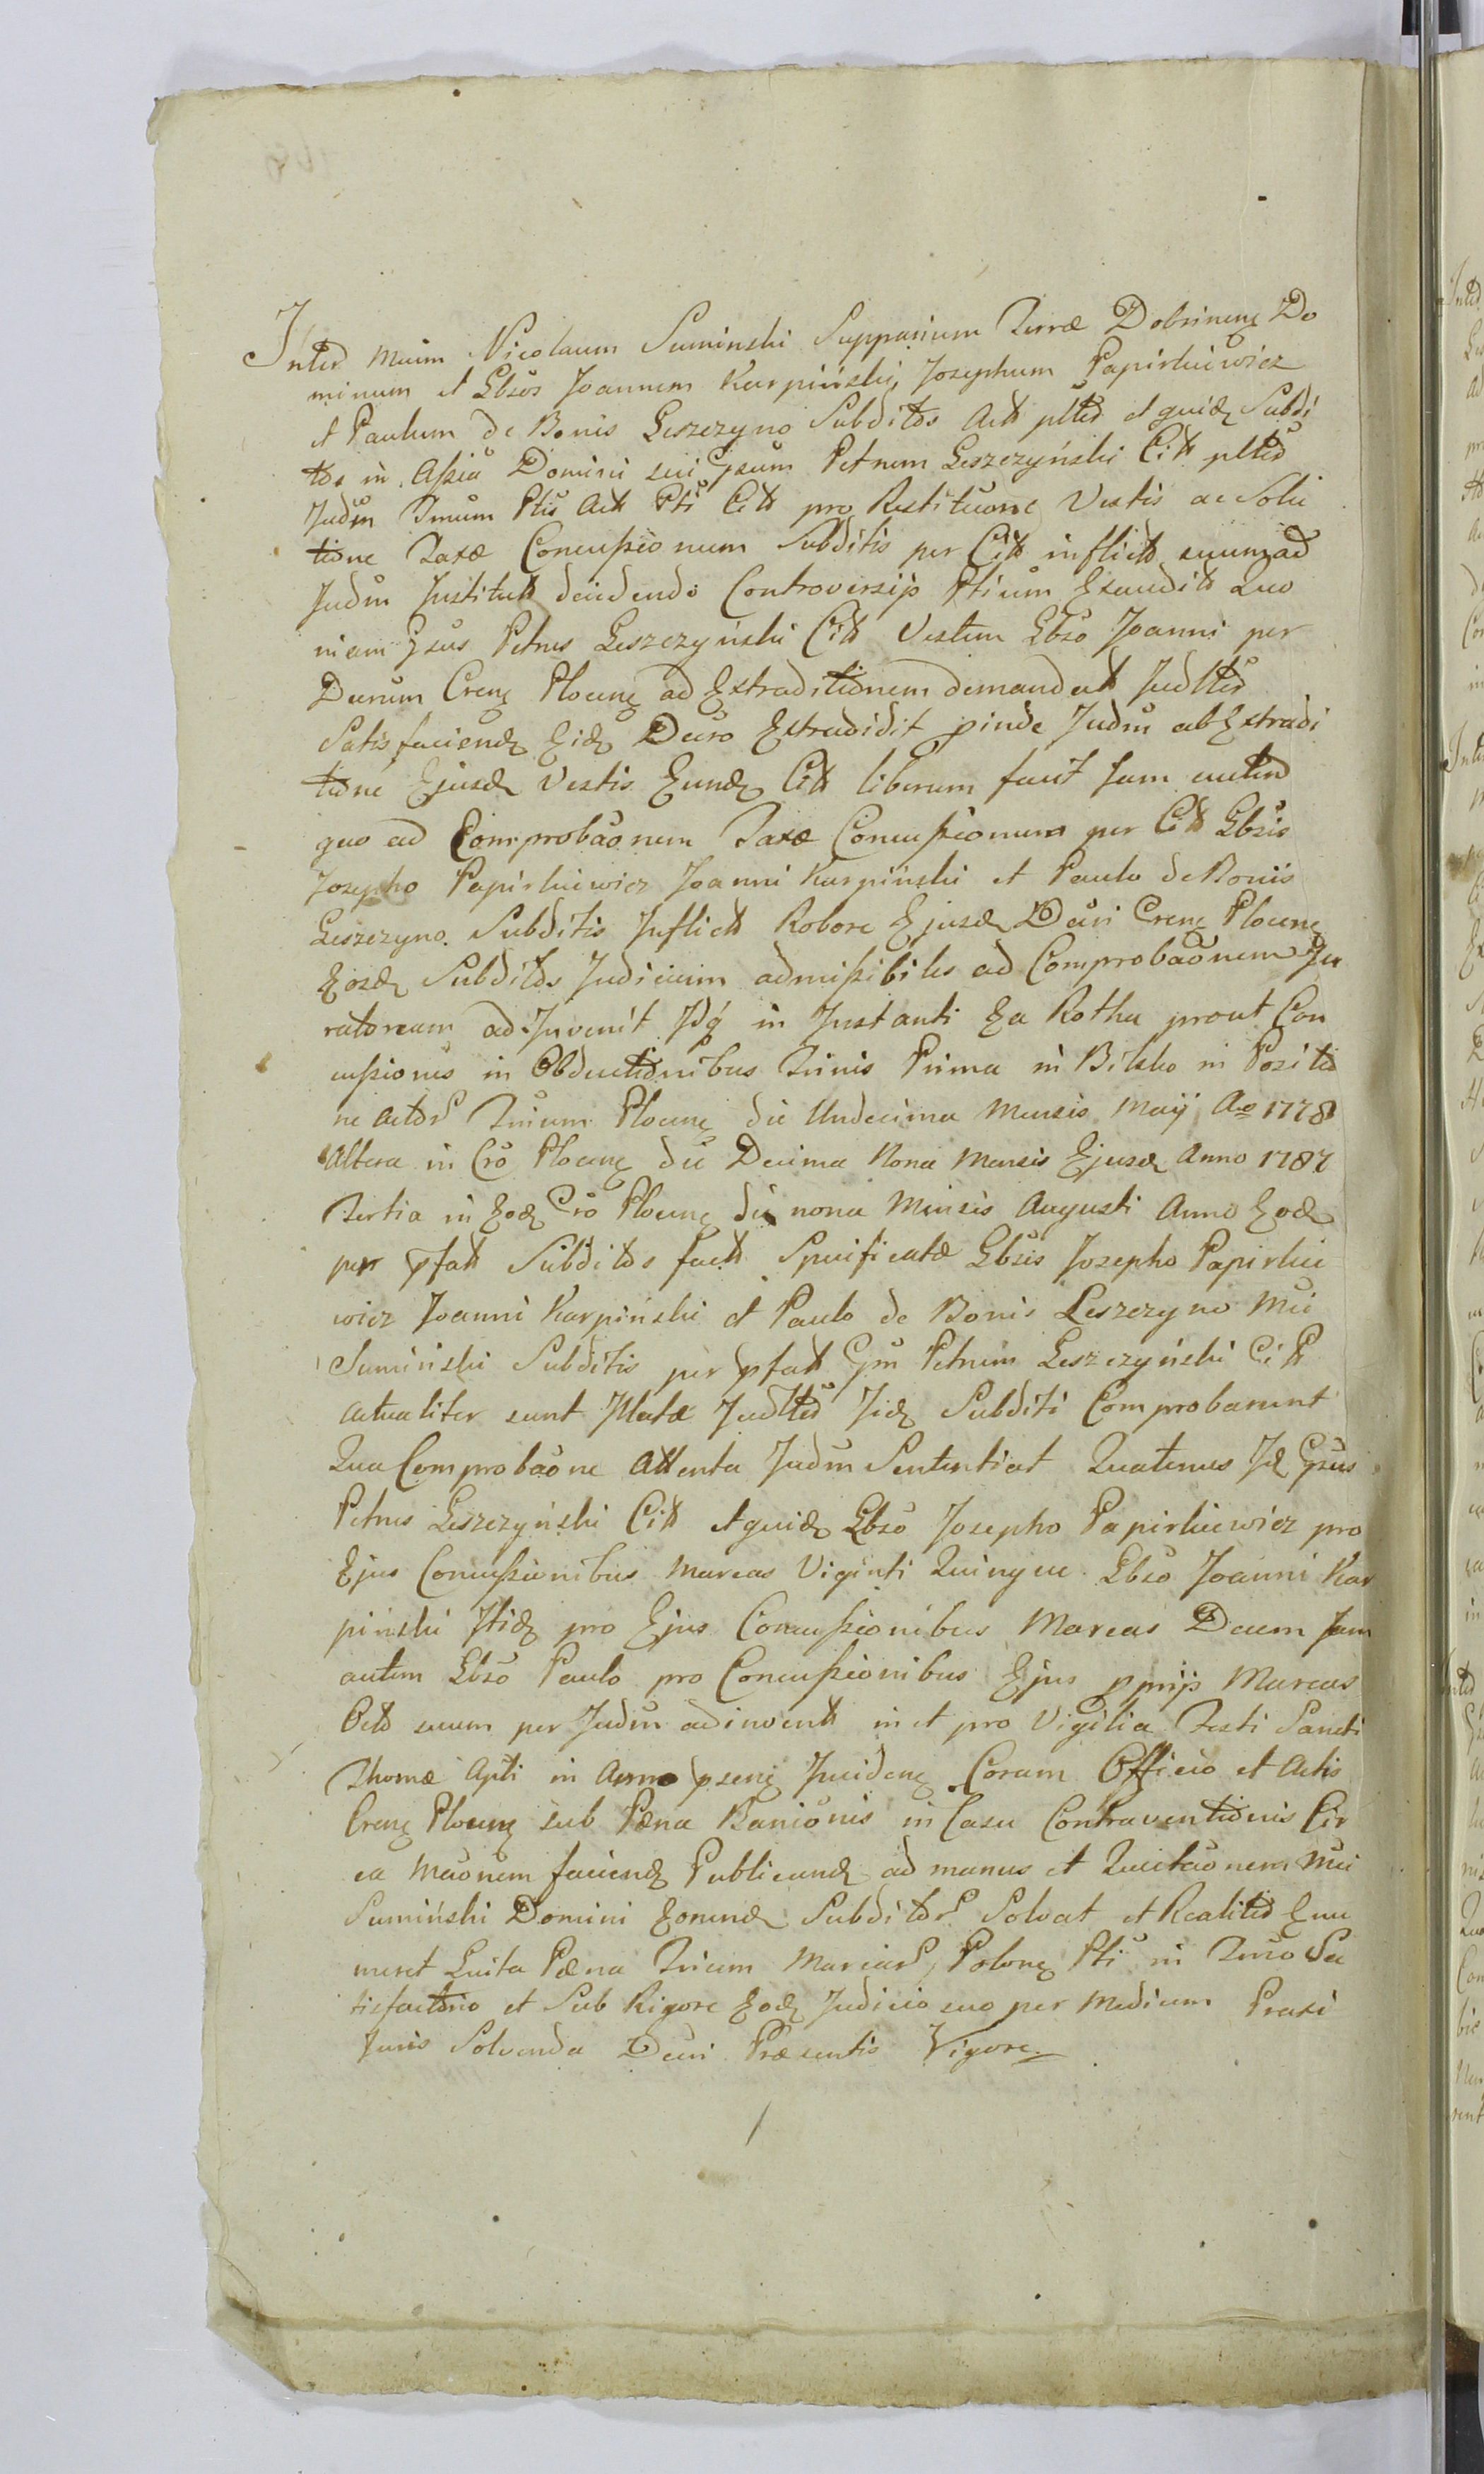 Inter Mcum Nicolaum Suminski Supparium Terræ Dobrinenẹ Do
minum et Lbsos Joannem Karpiński, Josephum Papirkiewicz
et Paulum de Bonis Leszczyno Subditos Act plter et quidẹ Subdi
tos in Assia Domini sui Gsum Petrum Leszczyński Citt plter
Judm Trnum Ptis Act Pti Citt pro Restituone Vestis ac Solu
tione Taxæ Concussionum Subditis per Citt inflictt suum ad
Judm Institutt decidendo Controversijs Ptium Exauditt Quo
niam Gsus Petrus Leszczyński Citt Vestem Lbso Joanni per
Decrum Crenẹ Plocenẹ ad Extraditionem demandatt Judlter
Satisfaciendẹ Eidẹ Decro Extradidit pinde Judm ab Extradi
tione Ejusdẹ Vestis Eundẹ Citt liberum facit Jam autem
quo ad Comprobaonem Taxæ Concussionum per Citt Lbsis
Josepho Papirkiewicz Joanni Karpiński et Paulo de Bonis
Leszczyno Subditis Inflictt Robore Ejusdẹ Decri Crenẹ Plocenẹ
Eosdẹ Subditos Judicium admissibiles ad Comprobaonem Ju
ratoream adjuvenit Idq in Instanti Ea Rotha prout Con
cussiones in Obductionibus Trinis Prima in Bilsko in Positio
ne Actor Trium Plocenẹ die Undecima Mensis Maij Ao 1778
Altera in Cro Plocenẹ die Decima Nona Mensis Ejusdẹ Anno 1787
Tertia in Eodẹ Cro Plocenẹ die nona Mensis Augusti Anno Eodẹ
per pfatt Subditos factt Specificatæ Lbsis Josepho Papirkie
wicz Joanni Karpiński et Paulo de Bonis Leszczyno Mci
Sumiński Subditis per pfatt Gsm Petrum Leszczyński Citt
actualiter sunt Illatæ Judlter Iidẹ Subditi Comprobarunt
Qua Comprobaone Attenta Judm Sententiat Quatenus Idẹ Gsus
Petrus Leszczyński Citt et quidẹ Lbso Josepho Papirkiewicz pro
Ejus Concussionibus Marcas Viginti Quinque Lbso Joanni Kar
piński Itidẹ pro Ejus Concussionibus Marcas Decem Jam
autem Lbso Paulo pro Concussionibus Ejus pprijs Marcas
Octo suum per Judm adinventt in et pro Vigilia Festi Sancti
Thomæ Apti in Anno psenẹ Incidenẹ Coram Officio et Actis
Crenẹ Plocenẹ sub Pæna Banionis in Casu Contraventionis Cir
ca Maonem faciendẹ Publicandẹ ad manus et Quietaonem Mci
Sumiński Domini Eorundẹ Subditor Solvat et Realiter Enu
meret Luita Pæna Trium Marcar Polonẹ Pti in Trno Sa
tisfactorio et Sub Rigore Eodẹ Judicio suo per Medium Praxi
Juris Solvenda Decri Præsentis Vigore.